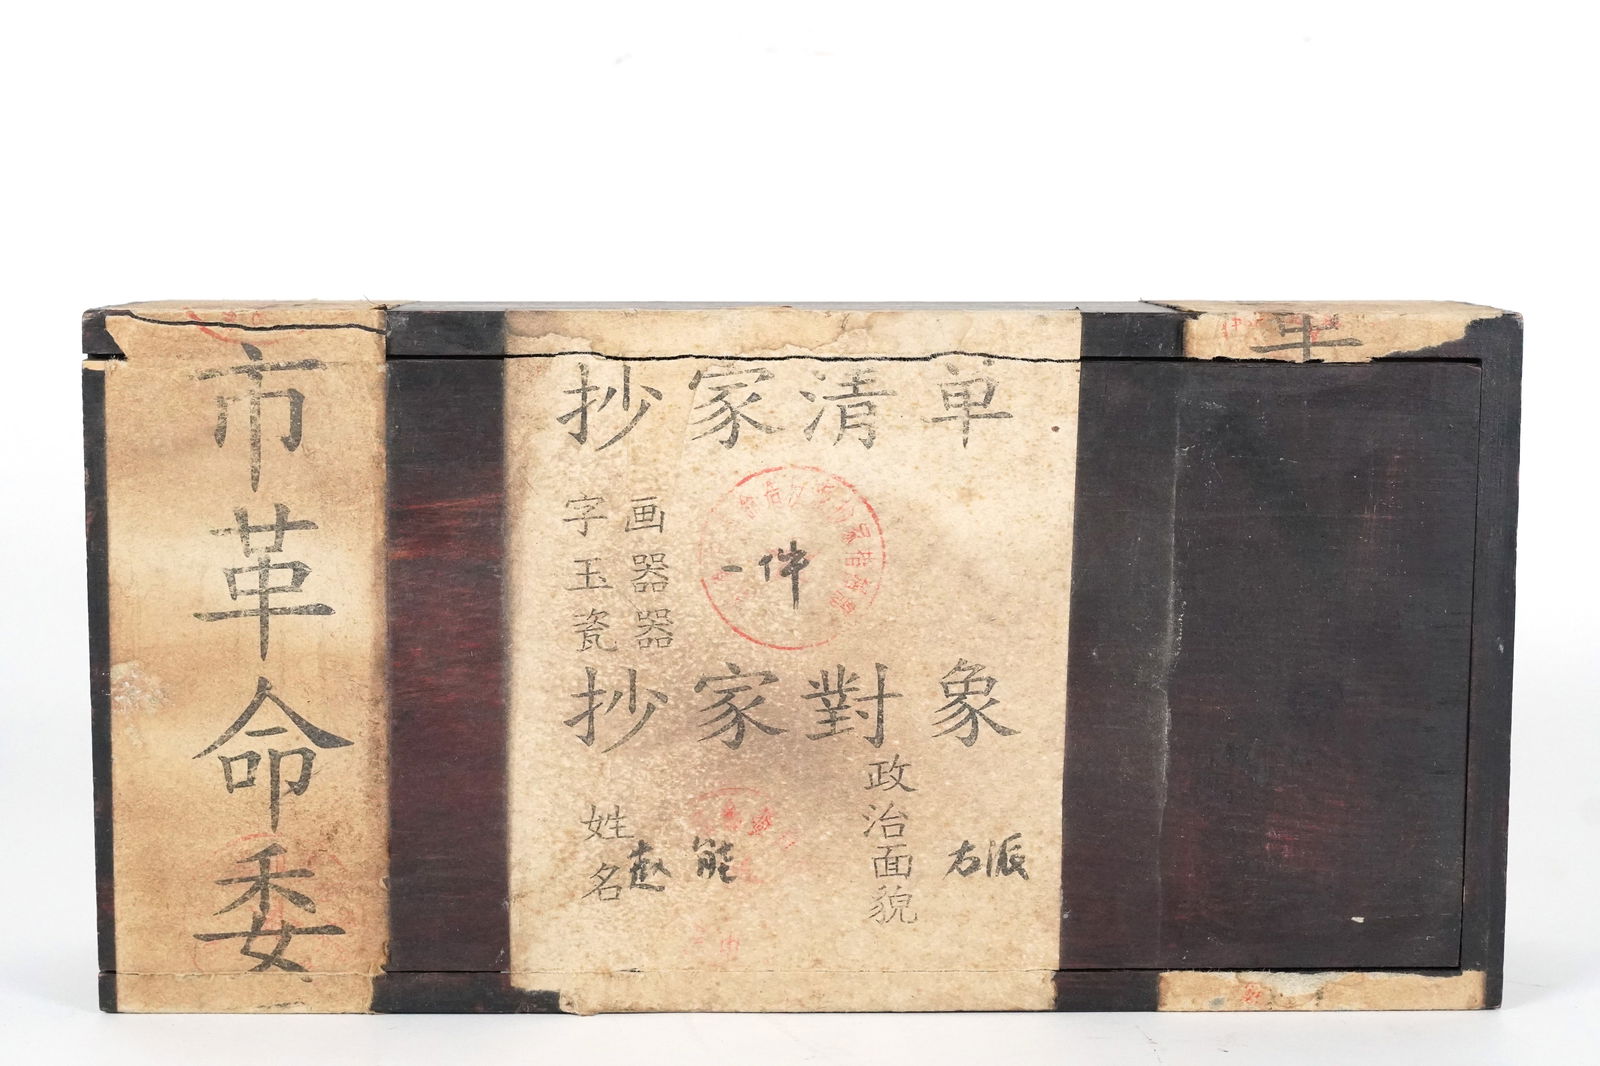 市革命委
抄家清单
字画
玉器
瓷器
一件
抄家對象
姓名
赵能
政治面貌
右派